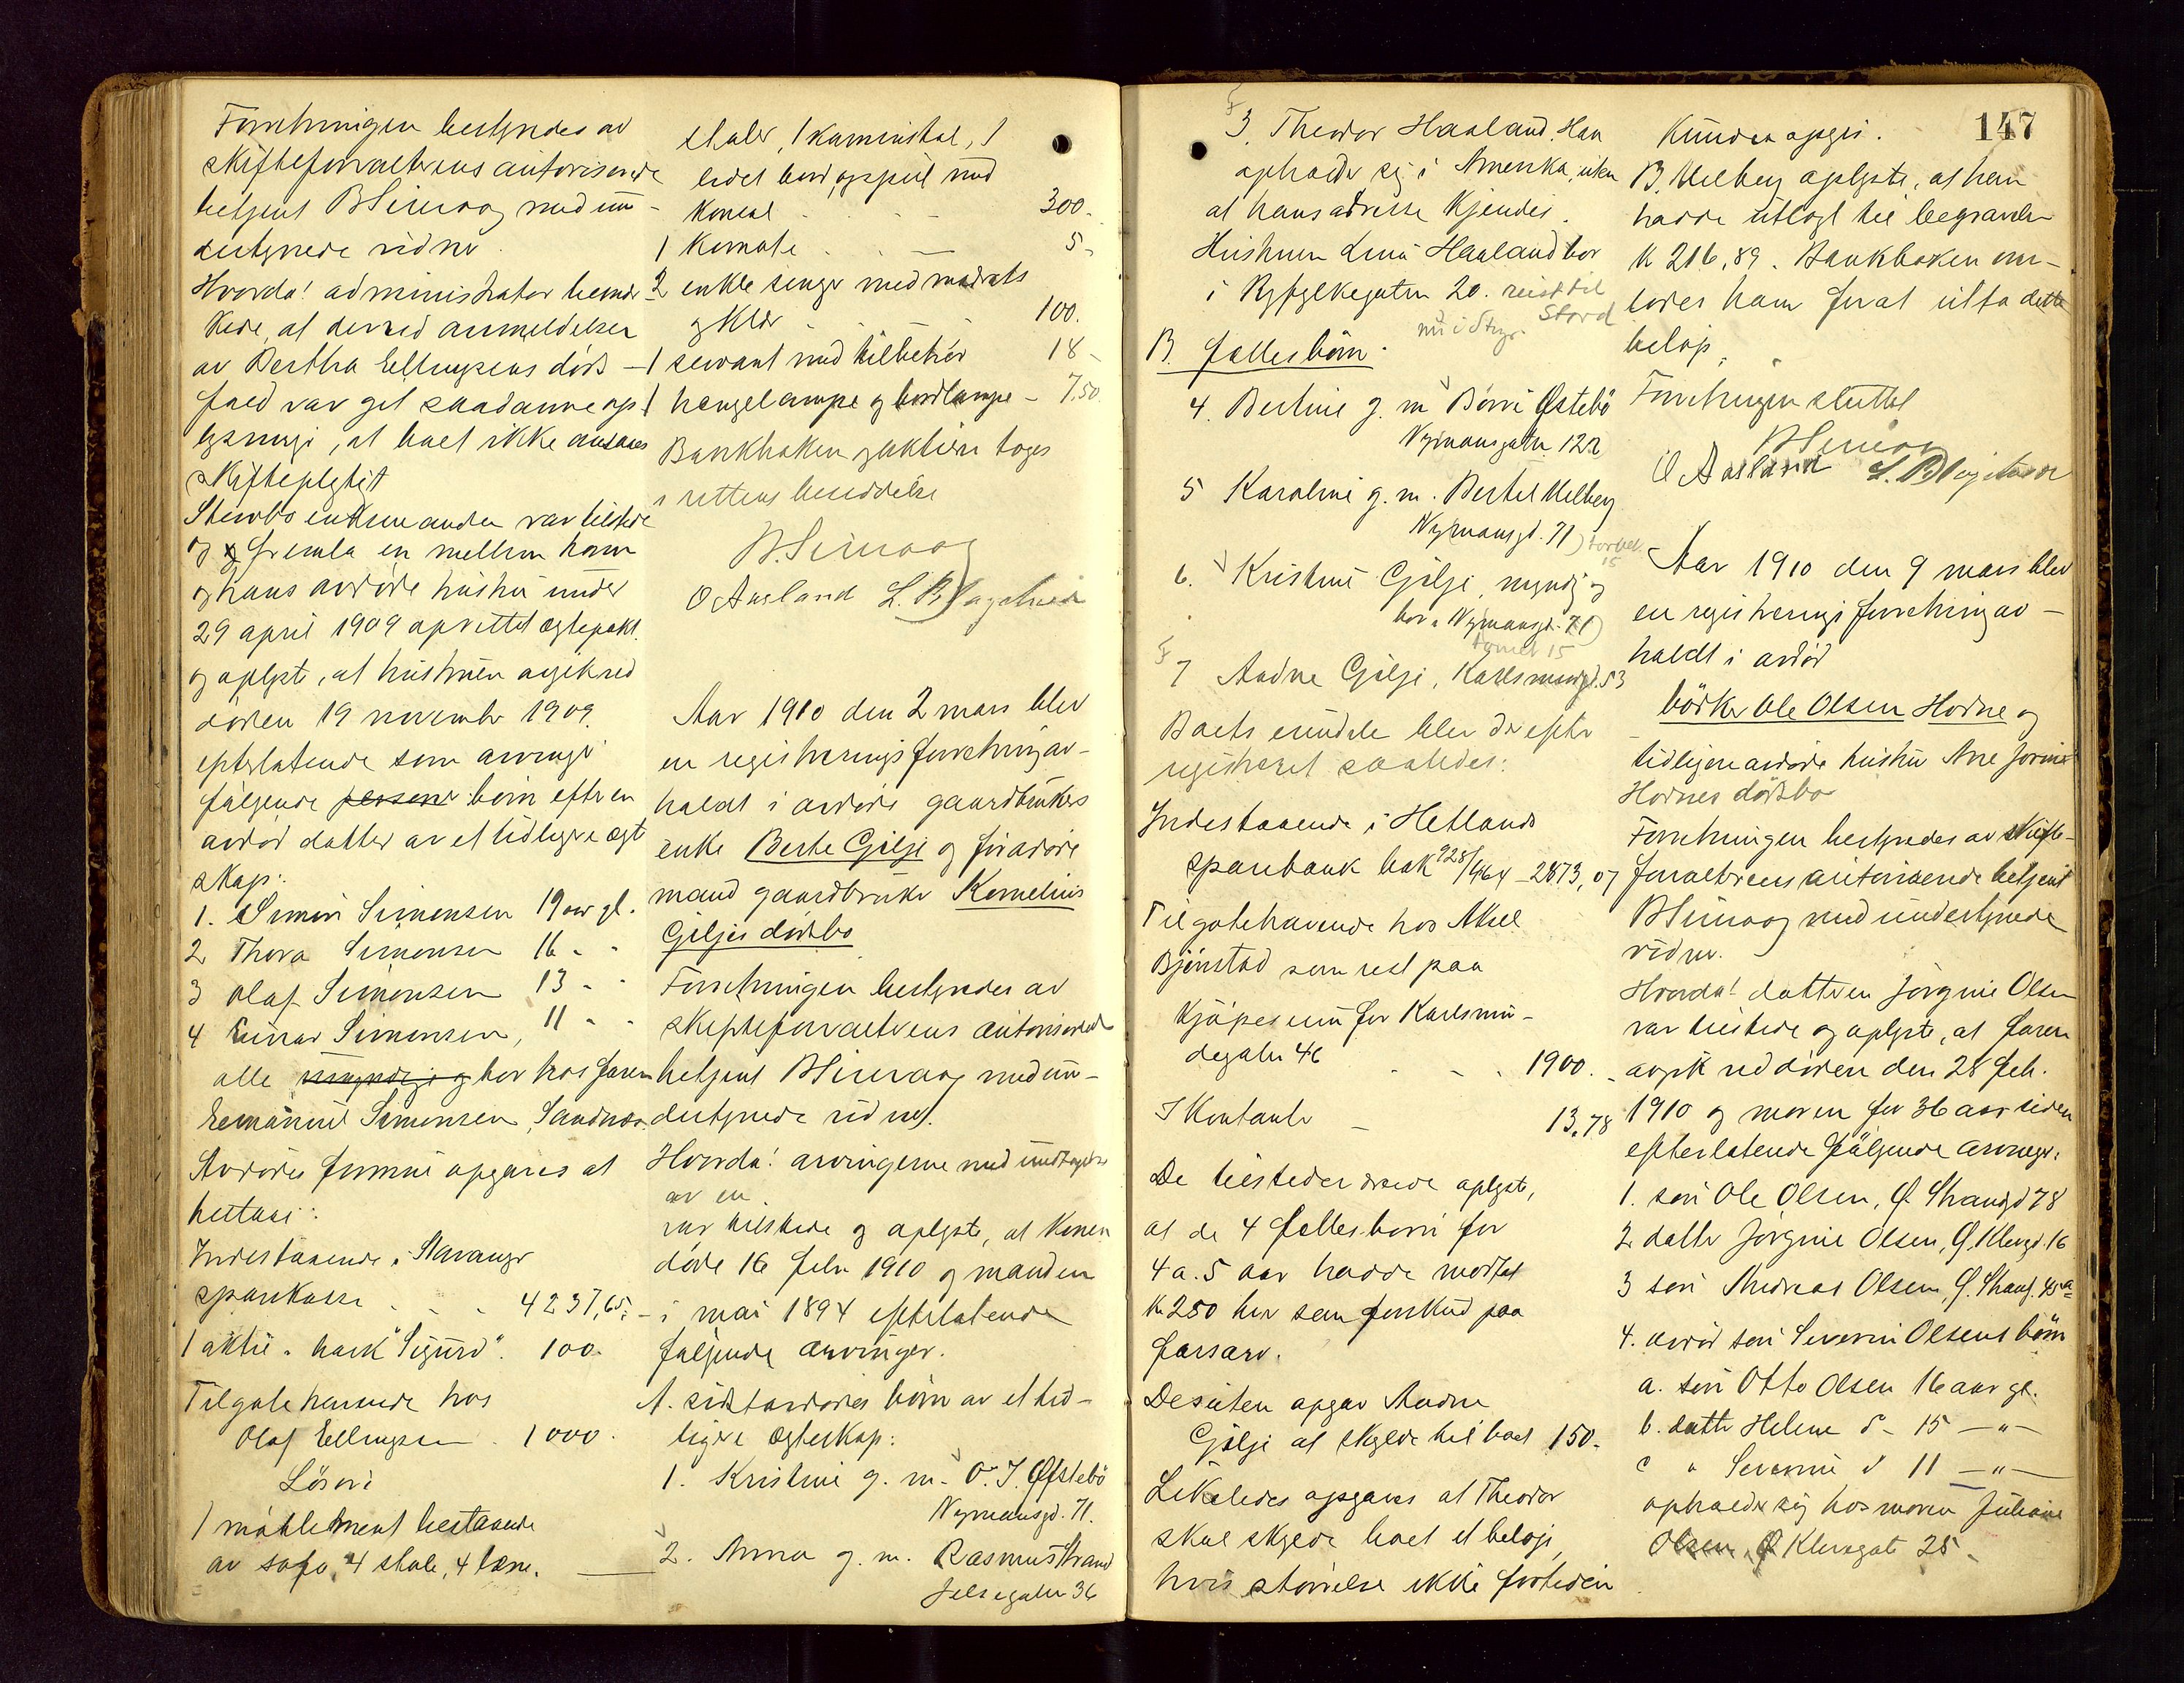 Forretningen bestyredes av
skifteforvalterens autoriserede
betjent B Simoog med un-
dertegnede vidner.
Hvorda! administrator bemær-
kede, at der ved anmeldelsen
av Bertha Ellingsens døds-
fald var git saadanne op-
lysninger, at boet ikke ansaaes
skiftepligtigt
Stervbo enkemanden var tilstede
og fremla en mellem ham
og hans avdøde hustru under
29 april 1909 oprettet ægtepakt
og oplyste, at hustruen avgik ved
døden 19 november 1909.
efterlatende som arvinger
følgende personer børn efter en
avdød datter av et tidligere ægte
skap:
1. Simon Simonsen 19 aar gl.
2 Thora Simonsen 16 " "
3 Olaf Simonsen 13 " "
4 Einar Simonsen, 11 " "
alle myndige og bor hos faren
Emanuel Simonsen, Sandnes.
Avdødes formue opgaves at
bestaa i:
Indestaaende i Stavanger
sparekasse 4237,65
1 aktie i bark "Sigurd". 100.
Tilgodehavende hos
Olaf Ellingsen 1000.
Løsøre
1 møblement bestaaende
av sofa, 4 stole, 4 læne-
stoler, 1 kaminstol, 1
ledet bord, speil med
konsol 300.
1 komode 5.
2 enkle senger med madrats
og klær 100.
1 servant med tilbehør 18
1 hængelampe og bordlampe 7,50
Bankboken og aktien toges
i rettens besiddelse
B. Simoog
O Aasland L. B
Aar 1910 den 2 mars blev
en registreringsforretning av-
holdt i avdøde gaardbrukers
enke Berte Gilje og før avdøde
mand gaardbruker Kornelius
Giljes dødsbo
Forretningen bestyredes av
skifteforvalterens autoriserede
betjent B Simoog med un-
dertegnede vidner.
Hvorda! arvingerne med undtagelse
av en
var tilstede og oplyste, at konen
døde 16 febr 1910 og manden
i mai 1894 efterlatende
følgende arvinger.
A. sidstavdødes børn av et tid-
ligere ægteskap:
1. Kristine g. m. O. J. Østebø
Nymansgd. 71.
2. Anna g. m. Rasmus Strand
Jelsegaten 36
147
3. Theodor Haaland. Han
opholder sig i Amerika, uten
at hans adresse kjendes.
Hustruen Lina Haaland bor
i Ryfylkegaten 20. reist til
Stord
nu i Svgr.
B. fællesbørn.
4. Bertine g. m Børre Østebø
Nymansgaten 122
5 Karoline g. m. Bertel Melberg
Nymansgd. 71
6. Kristine Gilje, myndig og
bor i Nymansgd. 71
15
7 Andne Gilje, Karlsmindegd. 53
Boets eiendele blev derefter
registreret saaledes:
Indestaaende i Hetlands
sparebank bok 928/464 2873,07
Tilgodehavende hos Aksel
Bjørnstad som rest paa
kjøpesum for Karlsmin-
degaten 46 1900.
I Kontanter 13,78
De tilstedeværende oplyste,
at de 4 fællesbørn for
4 a. 5 aar hadde mottat
kr 250 hver som forskud paa
farsarv.
Desuten opgav Andne
Gilje at skylde til boet 150.
Likeledes opgaves at Theodor
skal skylde boet et beløp,
hvis størrelse ikke fortiden
kunde opgis.
B. Melberg oplyste, at han
hadde utlagt til begravelse
kr 216,89. Bankboken over-
lodes ham for at utta dette
beløp.
Forretningen sluttet
B Simoog
O Aasland L. B
Aar 1910 den 9 mars blev
en registreringsforretning av-
holdt i avdød
bødker Ole Olsen Hodne og
tidligere avdøde hustru Ane Jorine
Hodnes dødsbo
Forretningen bestyredes av skifte-
forvalterens autoriserede betjent
B Simoog med undertegnede
vidner.
Hvorda! datteren Jørgine Olsen
var tilstede og oplyste, at faren
avgik ved døden den 28 feb.
1910 og moren for 36 aar siden
efterlatende følgende arvinger:
1. søn Ole Olsen, Ø. Strandgd 78
2 datter Jørgine Olsen, Ø. Klevgd. 16
3 søn Andreas Olsen, Ø. Strandg. 45a
4. avdød søn Severin Olsens børn
a. søn Otto Olsen 16 aar gl.
b. datter Helene d 15 — " —
c " Severine d 11 — " —
opholder sig hos moren Juliane
Olsen Ø Klevegate 25